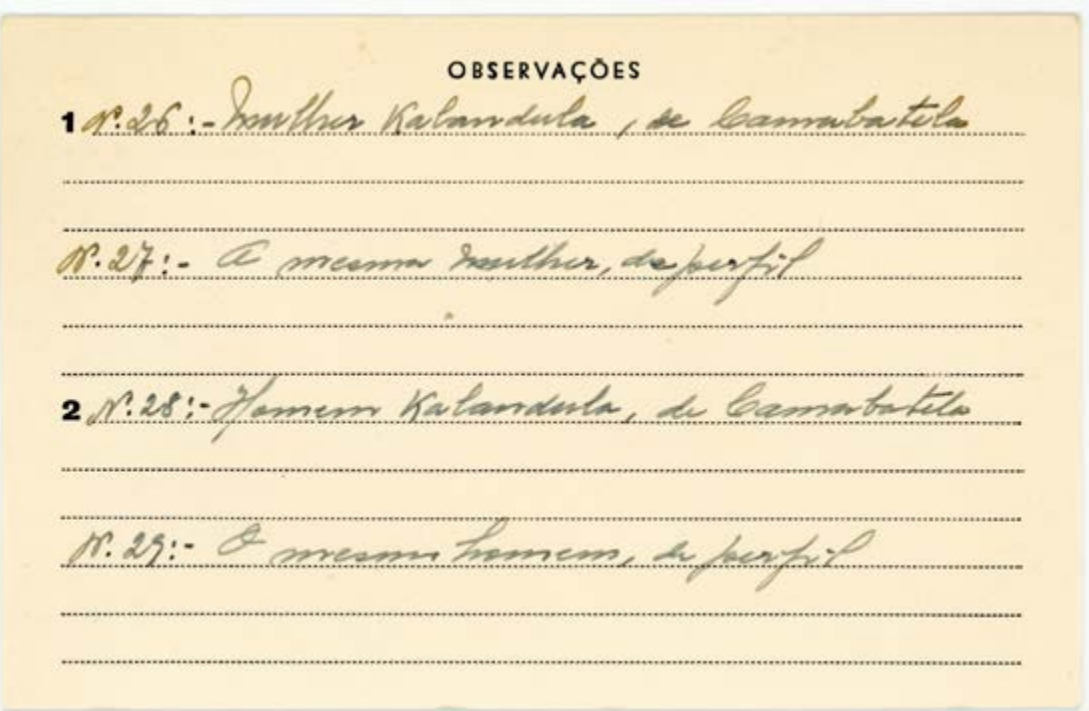 OBSERVAÇÕES
1 N.26:- Mulher Kalandula, de Camabatela
N.27:- A mesma mulher, de perfil
2 N.28:- Homem Kalandula, de Camabatela
N.29:- O mesmo homem, de perfil